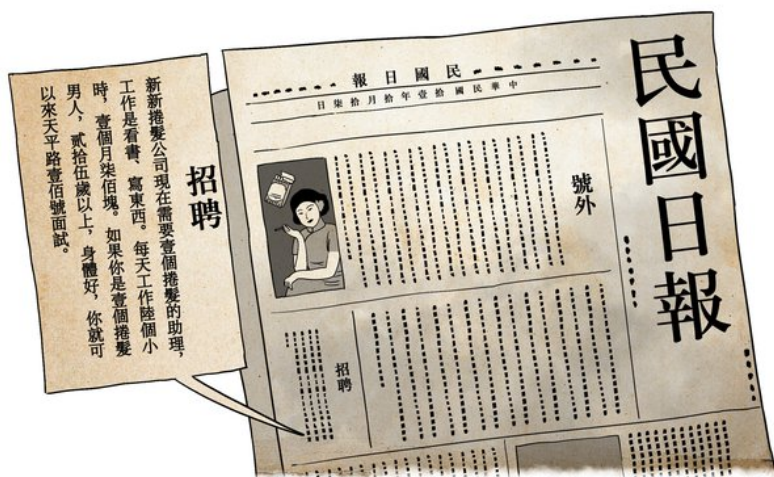 民國日報
民國日報
中華民國拾壹年拾月拾柒日
號外
招聘
招聘
新新捲髮公司現在需要壹個捲髮的助理,
工作是看書、寫東西。每天工作陸個小
時,壹個月柒佰塊。如果你是壹個捲髮
男人,貳拾伍歲以上,身體好,你就可
以來天平路壹佰號面試。